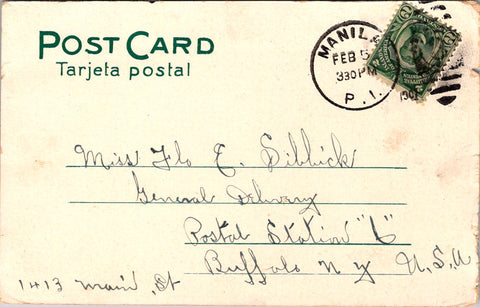 POST CARD
Tarjeta postal
MANILA
FEB 5
330 PM
P. I.
Miss Flo E. Sibbick
General Delivery
Postal Station "L"
Buffalo N Y U.S.A
1413 Main St